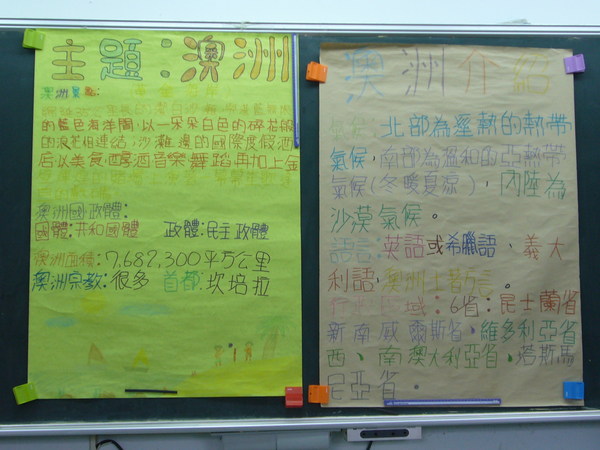 主題:澳洲
澳洲景點:
的藍色海洋間,以一朵朵白色的碎花般
的浪花相連結,沙灘邊的國際度假酒
店以美食、醇酒音樂舞蹈再加上金
澳洲國政體:
國體:共和國體 政體:民主政體
澳洲面積:7,682,300平方公里
澳洲宗教:很多 首都:坎培拉
澳洲介紹
氣候:北部為溼熱的熱帶
氣候,南部為溫和的亞熱帶
氣候(冬暖夏涼),內陸為
沙漠氣候。
語言:英語或希臘語、義大
利語,澳洲土著方言。
行政區域:6省:昆士蘭省
新南威爾斯省、維多利亞省
西、南澳大利亞省、塔斯馬
尼亞省。